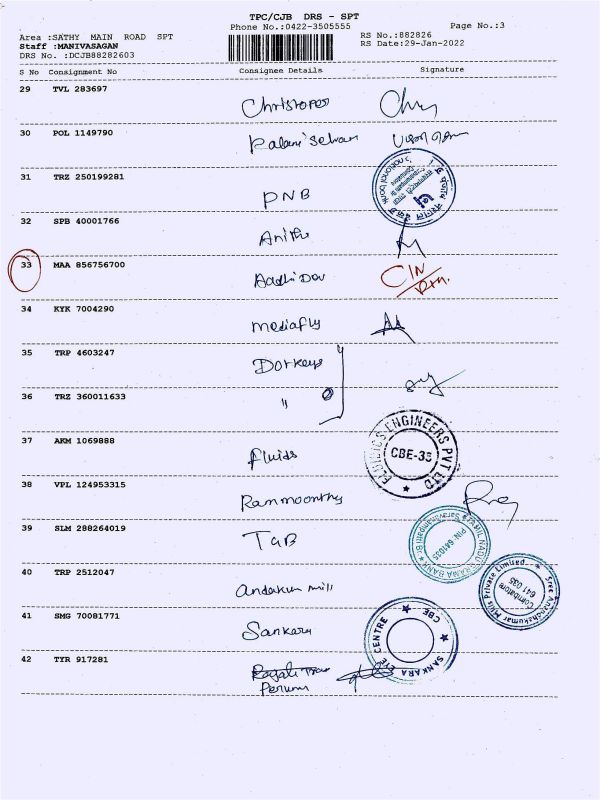 TPC/CJB DRS - SPT
Phone No.:0422-3505555
Page No.:3
Area :SATHY MAIN ROAD SPT
Staff :MANIVASAGAN
DRS No. :DCJB88282603
RS No.:882826
RS Date:29-Jan-2022
S No Consignment No Consignee Details Signature
29 TVL 283697 Christoper
30 POL 1149790
31 TRZ 250199281 PNB
32 SPB 40001766 Anitha
33 MAA 856756700 Aadhi Dev
34 KYK 7004290 Mediafly
35 TRP 4603247 Dorkeys
36 TRZ 360011633 "
37 AKM 1069888 fluids
FLUIDICS ENGINEERS PVT LTD
CBE-35
38 VPL 124953315 Rammoorthy
39 SLM 288264019 TGB
TAMIL NADU GRAMA BANK
PIN 641035
40 TRP 2512047 Andakum mill
Sree Anandhakumar Mills Private Limited
Coimbatore
641 035
41 SMG 70081771 Sankara
SANKARA EYE CENTRE
CBE
42 TYR 917281
Perumi